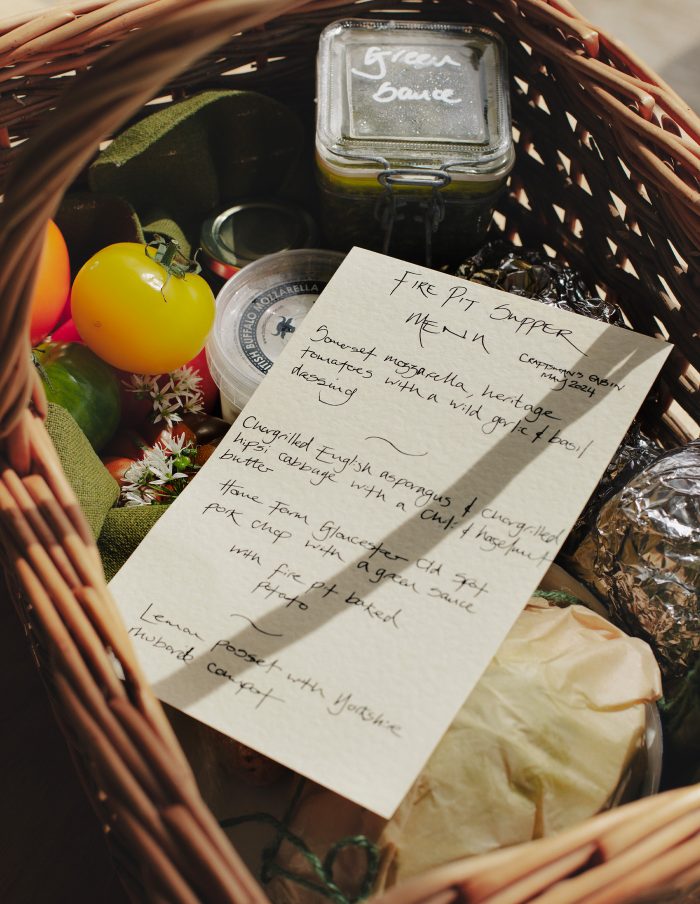 green
sauce
BRITISH BUFFALO MOZZARELLA
FIRE PIT SUPPER
MENU
CRAFTSMAN'S CABIN
MAY 2024
Somerset mozzarella, heritage
tomatoes with a wild garlic & basil
dressing
Chargrilled English asparagus & chargrilled
hipsi cabbage with a chilli & hazelnut
butter
Home Farm Gloucester Old Spot
pork chop with a green sauce
with fire pit baked
potato
Lemon posset with Yorkshire
rhubarb compot